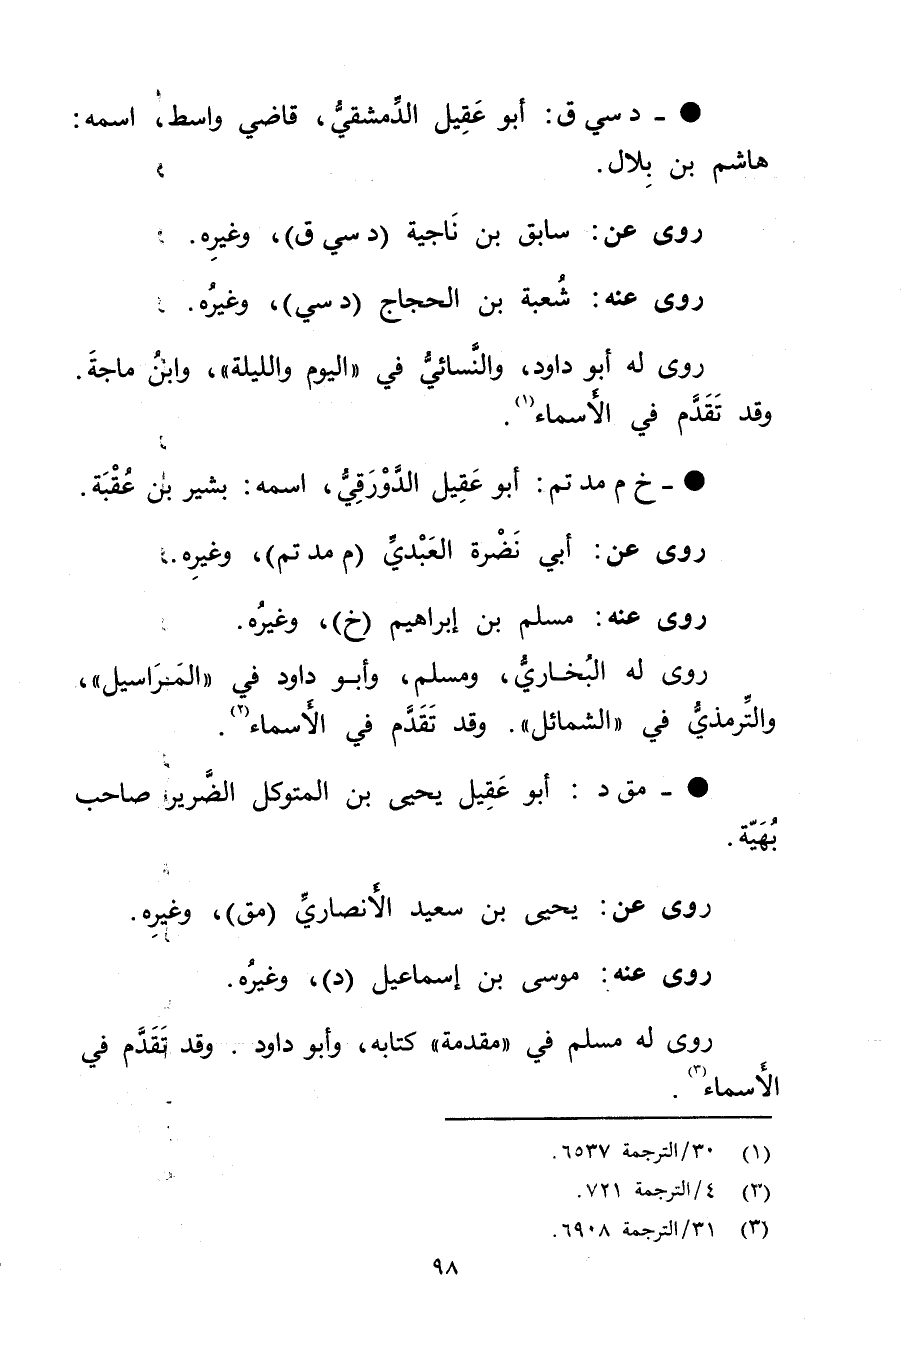 ● ـ د سي ق: أبو عَقِيل الدِّمشقيُّ، قاضي واسط، اسمه:
هاشم بن بِلال.
روى عن: سابق بن نَاجية (د سي ق)، وغيرِه.
روى عنه: شُعبة بن الحجاج (د سي)، وغيرُه.
روى له أبو داود، والنَّسائيُّ في «اليوم والليلة»، وابنُ ماجةَ.
وقد تَقَدَّم في الأَسماء(١).
● ـ خ م مد تم: أبو عَقِيل الدَّوْرَقِيُّ، اسمه: بشير بن عُقْبَة.
روى عن: أبي نَضْرة العَبْديِّ (م مد تم)، وغيرِه.
روى عنه: مسلم بن إبراهيم (خ)، وغيرُه.
روى له البُخاريُّ، ومسلم، وأبو داود في «المَرَاسيل»،
والتِّرمذيُّ في «الشمائل». وقد تَقَدَّم في الأَسماء(٢).
● ـ مق د : أبو عَقِيل يحيى بن المتوكل الضَّرير صاحب
بُهَيَّة.
روى عن: يحيى بن سعيد الأَنصاريِّ (مق)، وغيرِه.
روى عنه: موسى بن إسماعيل (د)، وغيرُه.
روى له مسلم في «مقدمة» كتابه، وأبو داود . وقد تَقَدَّم في
الأَسماء(٣).
(١) ٣٠/الترجمة ٦٥٣٧.
(٣) ٤/الترجمة ٧٢١.
(٣) ٣١/الترجمة ٦٩٠٨.
٩٨